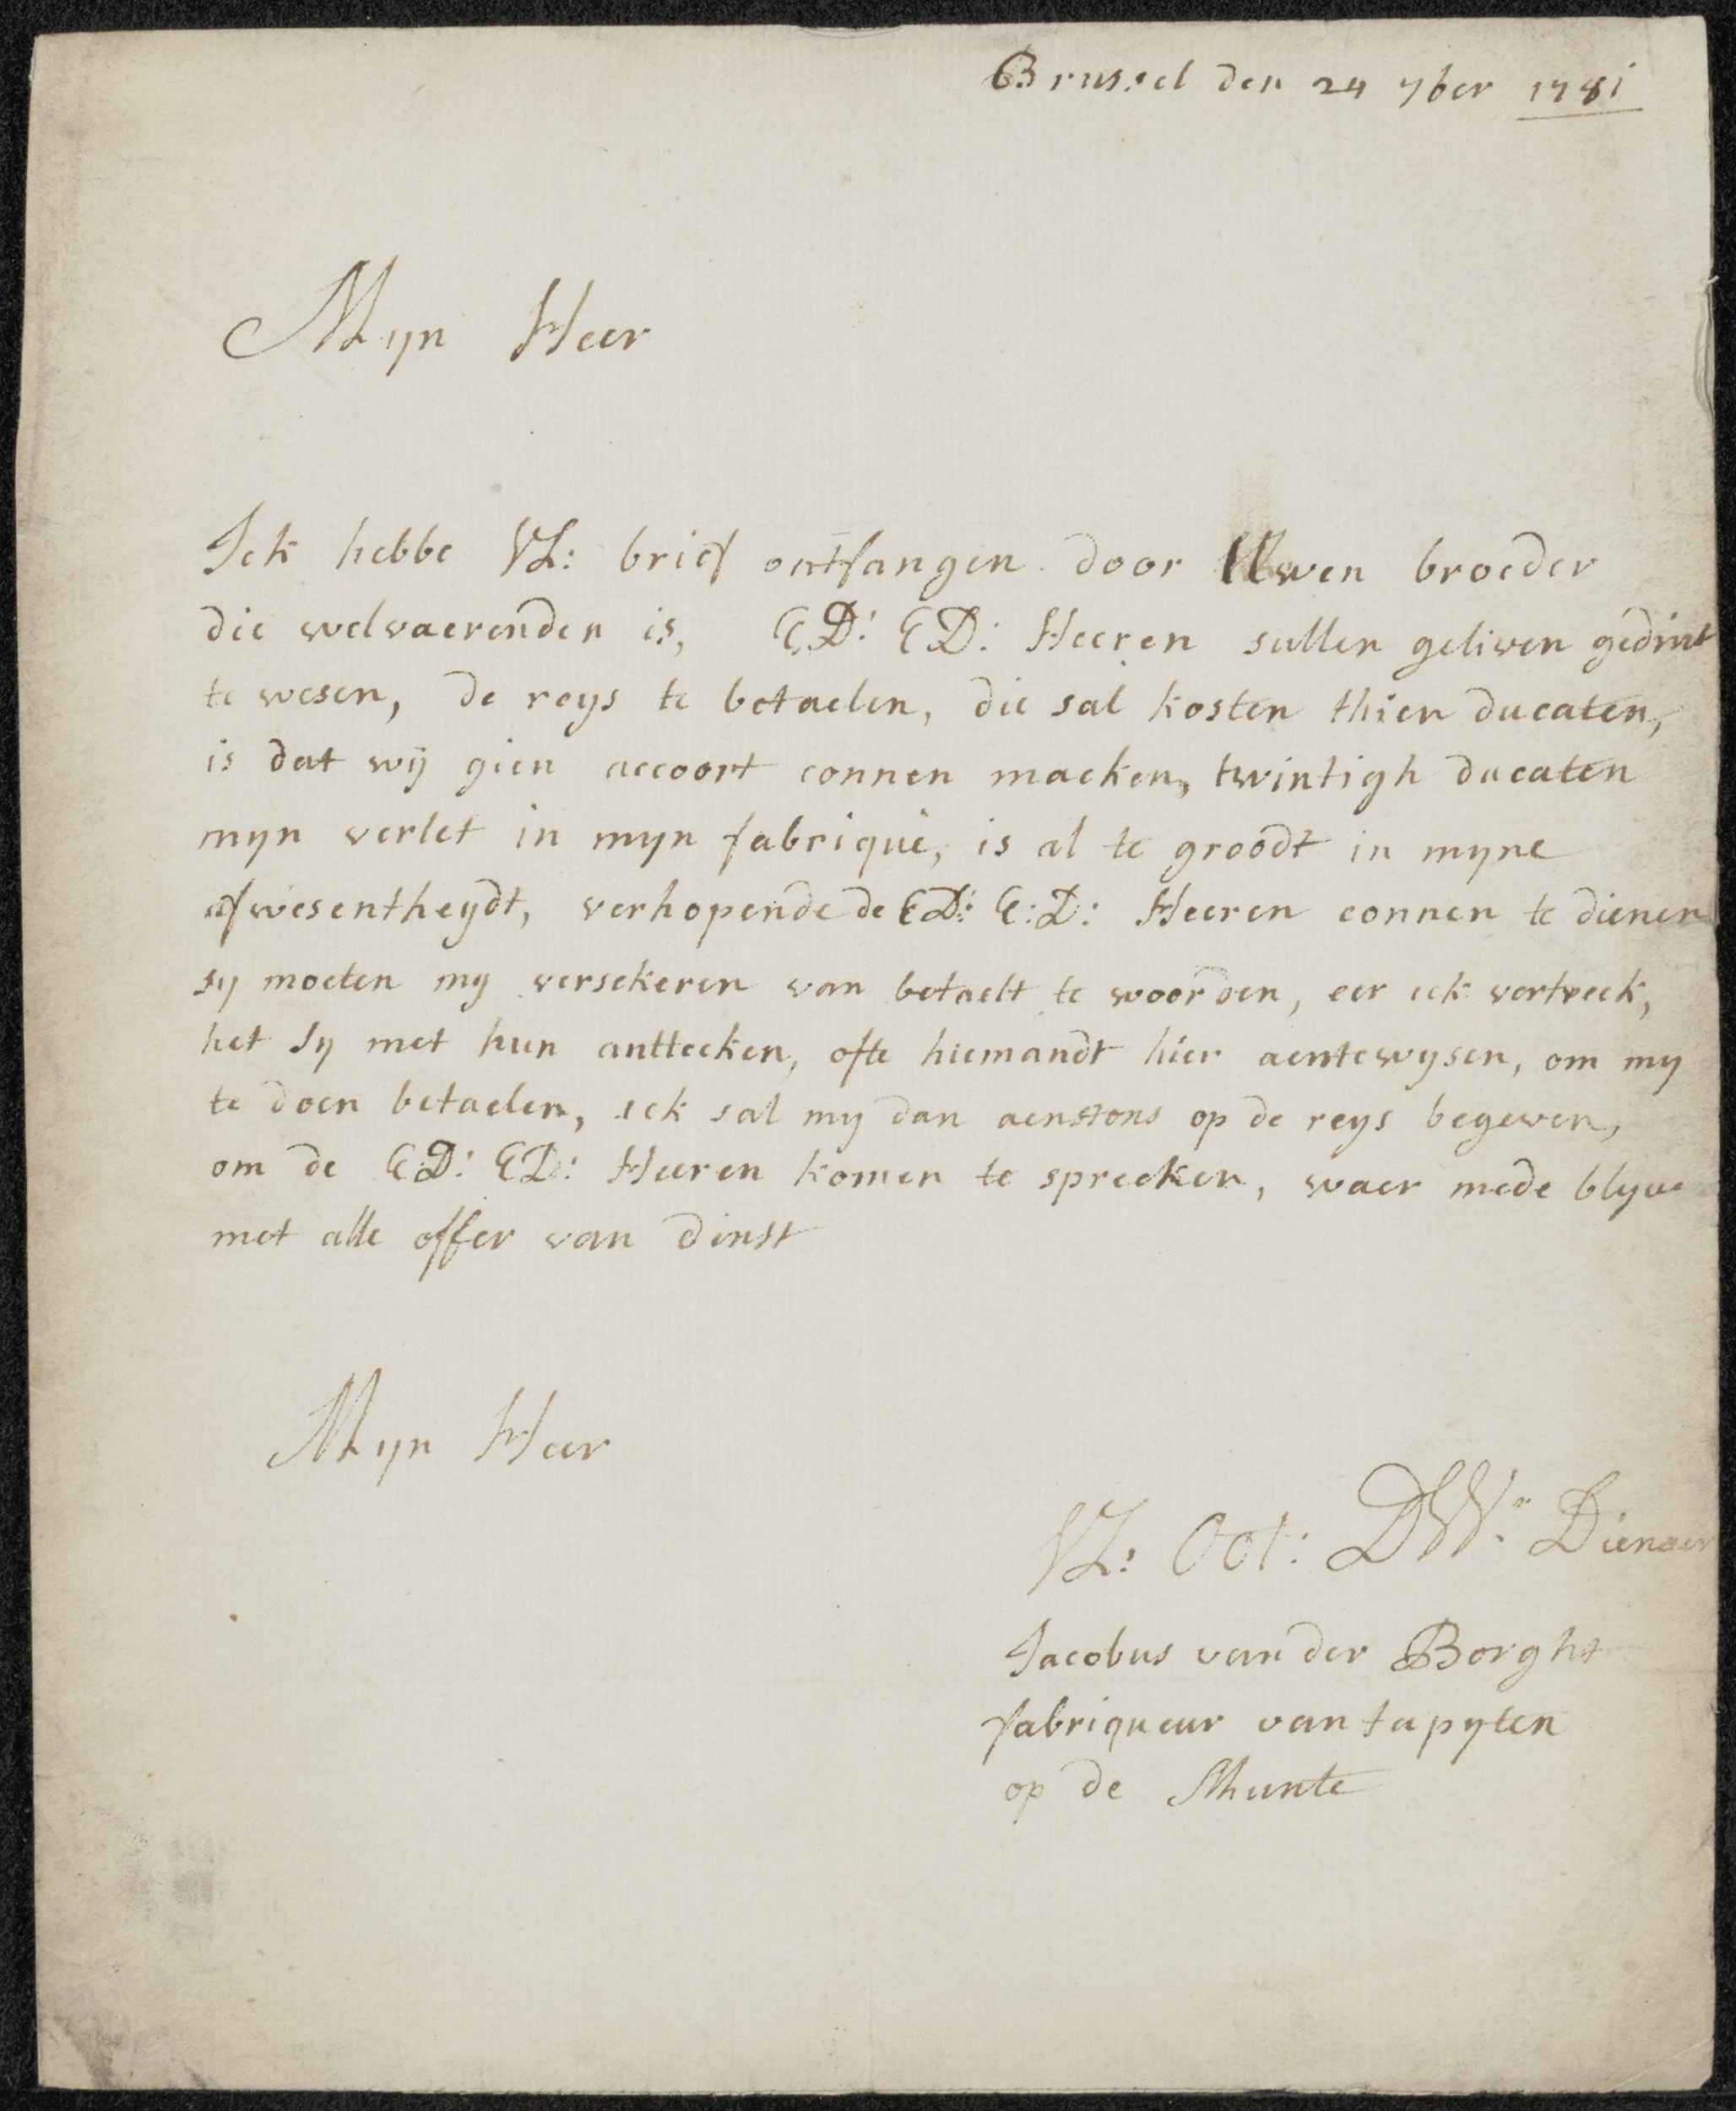 Brussel den 24 7ber 1781
Myn Heer
Ick hebbe VL: brief ontfangen door Uwen broeder
die welvaerenden is, ED: ED: Heeren sullen geliven gedint
te wesen, de reys te betaelen, die sal kosten thien ducaten,
is dat wij gien accoort connen macken, twintigh ducaten
myn verlet in myn fabrique, is al te groodt in myne
afwesentheydt, verhopende de ED: E:D: Heeren connen te dienen
sy moeten my versekeren van betaelt te woorden, eer ick vertreck,
het sy met hun antteeken, ofte hiemandt hier aentewysen, om my
te doen betaelen, ick sal my dan aenstons op de reys begeven,
om de ED: ED: Heeren komen te spreeken, waer mede blyve
met alle offer van dinst
Myn Heer
VL: Oot: DW: Dienaer
Jacobus van der Borght
fabriqueur van tapyten
op de Munte